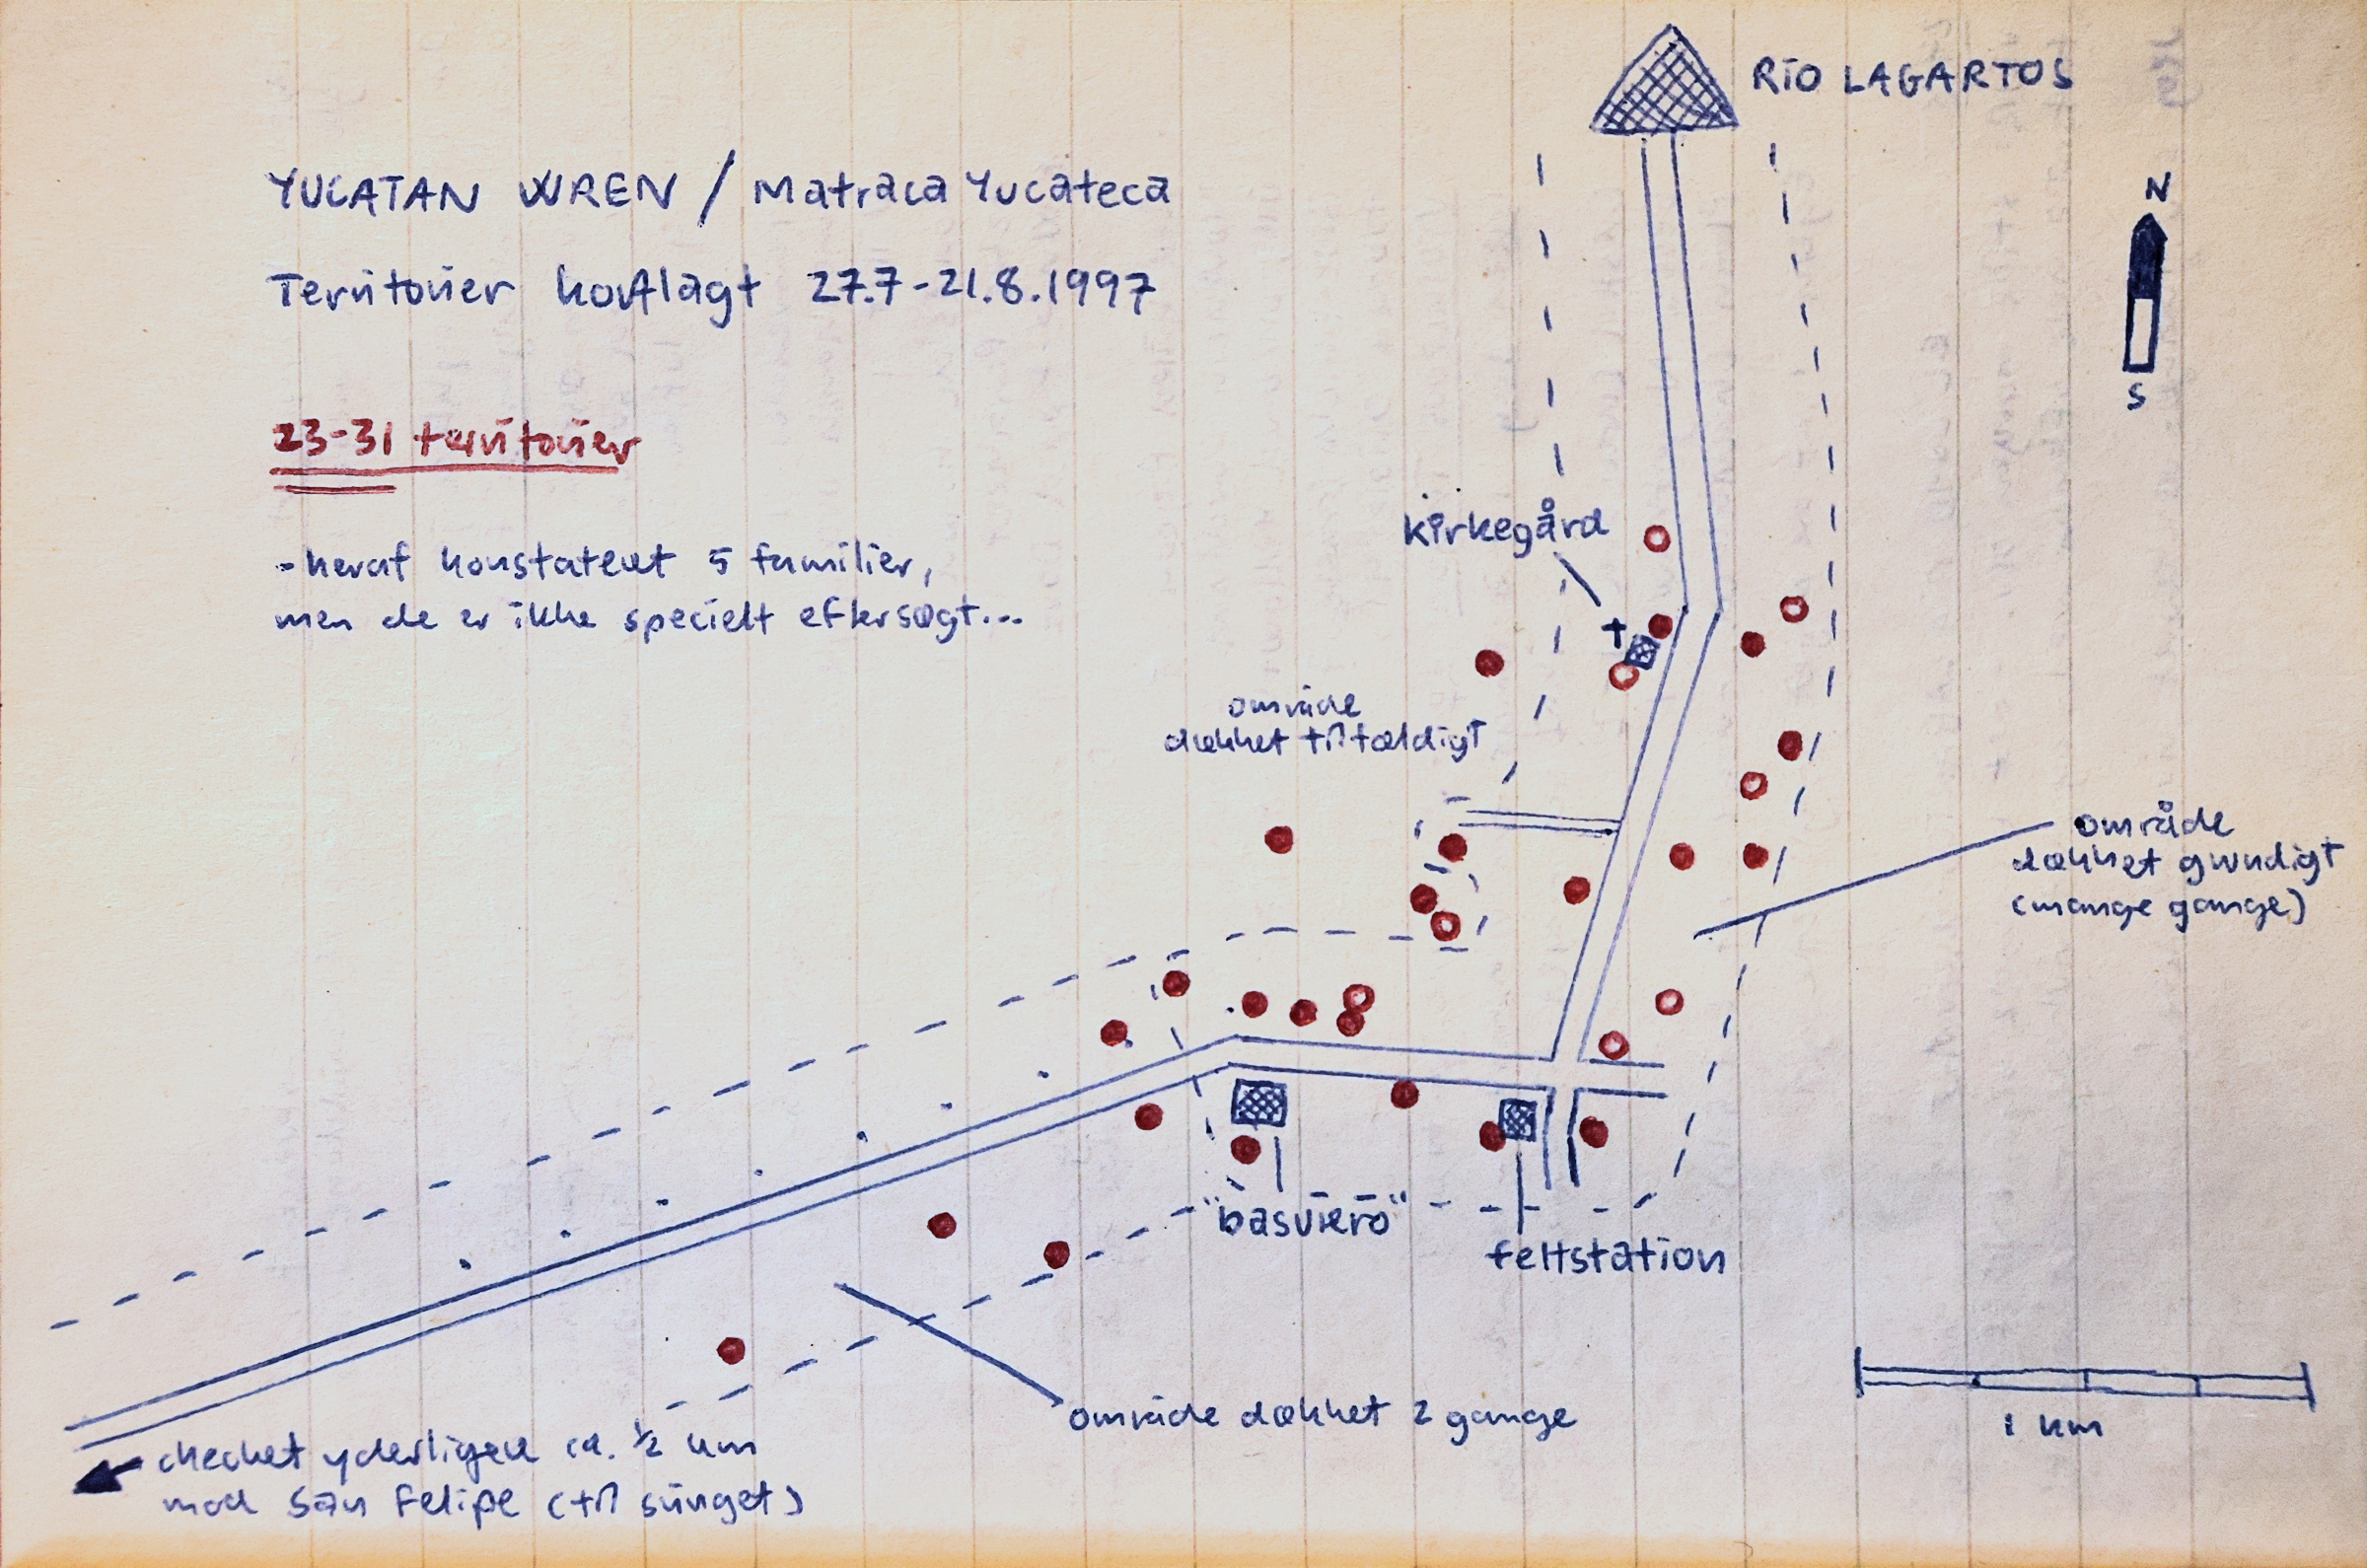 RÍO LAGARTOS
YUCATAN WREN / Matraca Yucateca
Territorier kortlagt 27.7-21.8.1997
N
S
23-31 territorier
- heraf konstateret 5 familier,
men de er ikke specielt eftersøgt...
kirkegård
område
dækket tilfældigt
område
dækket grundigt
(mange gange)
"basurero"
feltstation
område dækket 2 gange
1 km
checket yderligere ca. ½ km
mod San Felipe (til svinget)